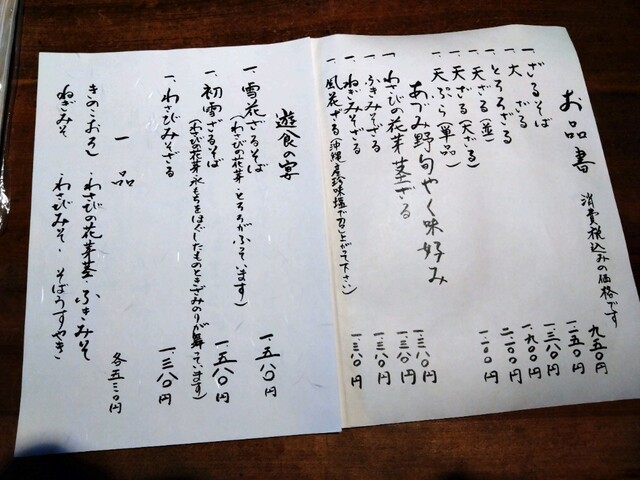 お品書
消費税込みの価格です
一、ざるそば 九五〇円
一、大ざる 一、一五〇円
一、とろろざる 一、三八〇円
一、天ざる(並) 一、九〇〇円
一、天ざる(大ざる) 二、一〇〇円
一、天ぷら(単品) 一、一〇〇円
あづみ野旬やく味好み
一、わさびの花芽茎ざる 一、三八〇円
一、ふきみそざる 一、三八〇円
一、ねぎみそざる 一、三八〇円
一、風花ざる(沖縄産珍味塩で召し上がって下さい) 一、三八〇円
遊食の宴
一、雪花ざるそば 一、五八〇円
(わさびの花芽・とろろがふっています)
一、初雪ざるそば 一、五八〇円
(わさびの花芽氷もちをほぐしたものときざみのりが舞っています)
一、わさびみそざる 一、三八〇円
一品
きのこおろし・わさびの花芽茎・ふきみそ
ねぎみそ・わさびみそ・そばうすやき
各五三〇円